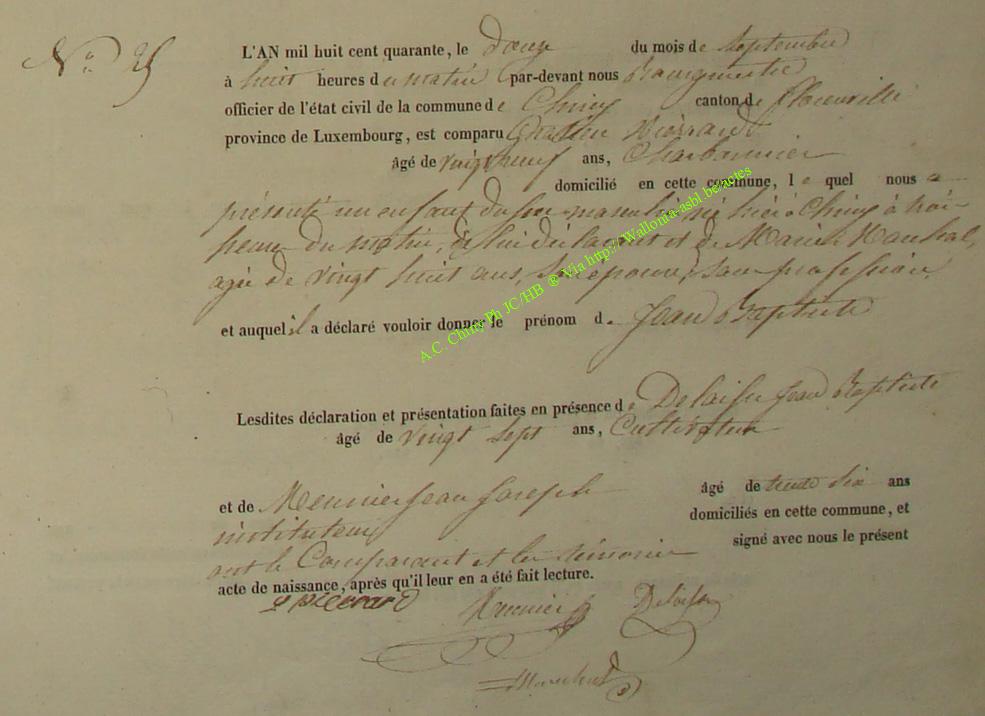 N° 25
L'AN mil huit cent quarante, le douze du mois de Septembre
à huit heures du matin par-devant nous Bourgmestre
officier de l'état civil de la commune de Chiny canton de Florenville
province de Luxembourg, est comparu
âgé de vingt neuf ans, Charbonnier
domicilié en cette commune, le quel nous a
présenté un enfant du sexe masculin né hier à Chiny à trois
heures du matin, de lui déclarant et de Marie
agée de vingt huit ans, son epouse, sans profession
et auquel il a déclaré vouloir donner le prénom de Jean Baptiste
Lesdites déclaration et présentation faites en présence de Jean Baptiste
âgé de vingt sept ans, Cultivateur
et de Meunier Jean Joseph âgé de trente six ans
instituteur domiciliés en cette commune, et
ont le Comparant et les témoins signé avec nous le présent
acte de naissance, après qu'il leur en a été fait lecture.
Meunier
A.C. Chiny Ph JC/HB ® Via http://Wallonia-asbl.be/actes